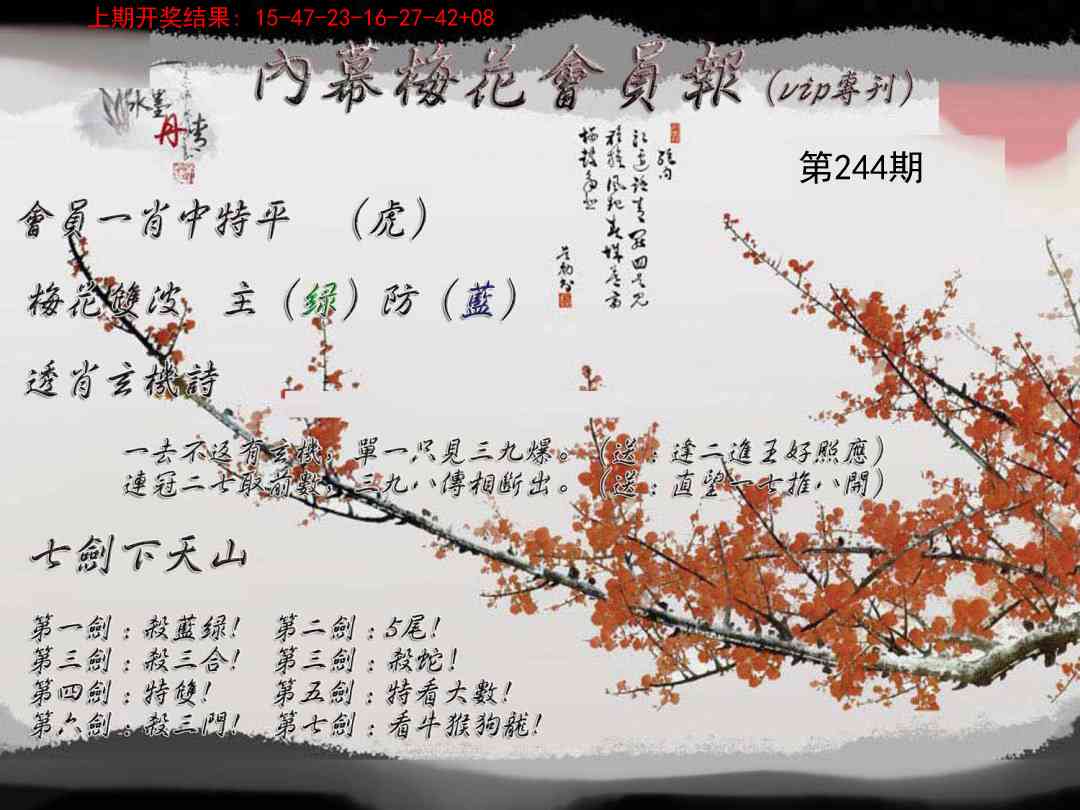 上期开奖结果: 15-47-23-16-27-42+08
內幕梅花會員報(vip專刊)
水墨
丹青
第244期
會員一肖中特平 (虎)
梅花雙波 主(绿)防(藍)
透肖玄機詩
一去不返有玄機,單一只見三九爆。(送:逢二進五好照應)
連冠二七取前數,三九八傳相斷出。(送:直望一七推八開)
七劍下天山
第一劍:殺藍绿! 第二劍:5尾!
第三劍:殺三合! 第三劍:殺蛇!
第四劍:特雙! 第五劍:特看大數!
第六劍:殺三門! 第七劍:看牛猴狗龍!